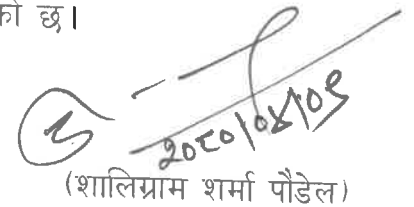 को छ।
२०८०।०४।०९
(शालिग्राम शर्मा पौडेल)